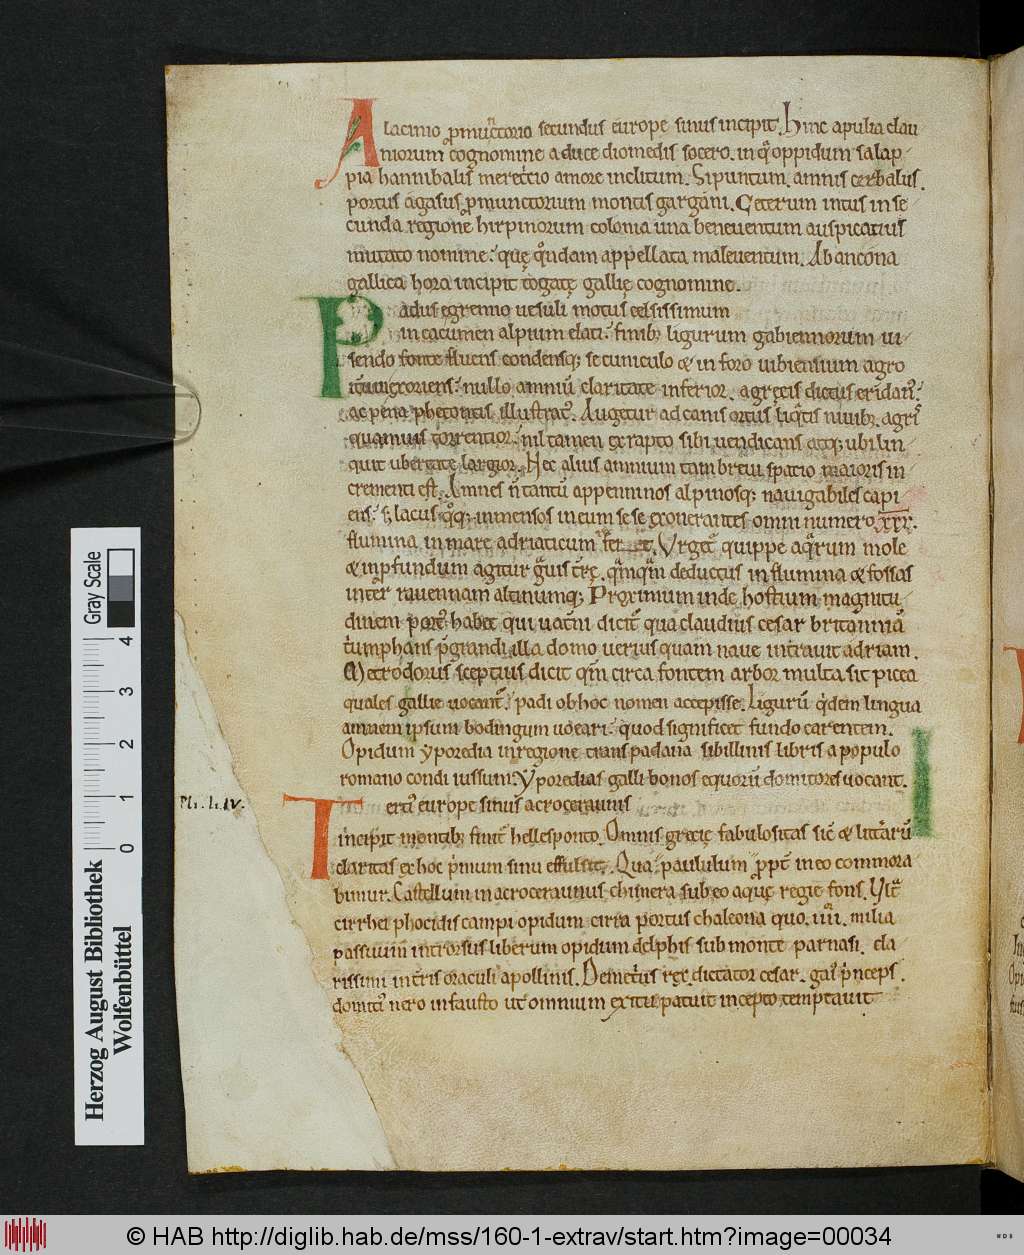 Alacinio ꝓmunctorio secundus europe sinus incipit. Hinc apulia dau
niorum cognomine a duce diomedis socero. in qͣ oppidum salap-
pia hannibalis meretricio amore inclitum. Sipuntum. amnis cerbalus.
portus agasus ꝓmunctorium montis gargani. Ceterum intus in se
cunda regione hirpinorum colonia una beneuentum auspicatius
mutato nomine. quę qͦndam appellata maleuentum. Ab ancona
gallica hora incipit togatę gallię cognomine.
Padus e gremio uesuli motus celsissimum
in cacumen alpium elati. finib; ligurum gabiennorum ui-
sendo fonte fluens condensq; se cuniculo & in foro uibiennum agro
nullo amniū claritate inferior. a gręcis dictus eridan᾽.
ac pena phetontis illustrat᾽. Augetur ad canis ortus liq̄tis niuib; agris
quamuis torrentior. nil tamen ex rapto sibi uendicans atq; ubi lin-
quit ubertate largior. Hec alius amnium tam breui spatio maioris in
crementi est. Amnes n̄ tantū appenninos alpinosq; nauigabiles capi
ens. s; lacus qͦq; inmensos in eum sese exonerantes omni numero XXX.
flumina in mare adriaticum Urget̄ quippe aqͣrum mole
& in ꝓfundum agitur gͣuis t̄rę. qͣmqͣm deductus in flumina & fossas
inter rauennam altinumq; Proximum inde hostium magnitu
dinem port᾽ habet qui uat̄ni dicit̄ qua claudius cesar britanniā
t̍umphans p̄grandi illa domo uerius quam naue intrauit adriam.
Metrodorus sceptius dicit qm̄ circa fontem arbor multa sit picea
quales gallie uocant̄. padi ob hoc nomen accepisse. Ligurū qͥdem lingua
amnem ipsum bodingum uocari. quod significet fundo carentem.
Opidum yporedia in regione transpadana sibillinis libris a populo
romano condi iussum. Yporedias galli bonos equorū domitores uocant.
Terti᾽ europe sinus acroceraunis
incipit montib; finit̄ hellesponto. Omnis grecię fabulositas sic̄ & litt̄arū
claritas ex hoc pͥmum sinu effulsit. Qua ꝓpt̄ paululum in eo commora
bimur. Castellum in acroceraunus chimera sub eo aquę regie fons.
cirrhei phocidis campi opidum cirra portus chaleona quo. iiii. milia
passuum introrsus liberum opidum delphis sub monte parnasi. cla
rissimi in t̄ris oraculi apollinis. Demetrius rex. dictator cesar. gai᾽ pͥnceps.
domiti᾽ nero infausto ut omnium exitu patuit incepto temptauit
Pli. l. IV.
Herzog August Bibliothek
Wolfenbüttel
Gray Scale
0 1 2 3 4
© HAB http://diglib.hab.de/mss/160-1-extrav/start.htm?image=00034